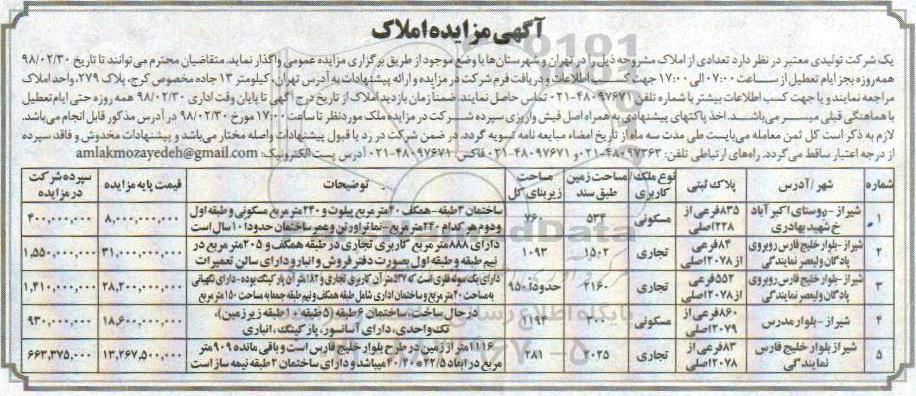 آگهی مزایده املاک
یک شرکت تولیدی معتبر در نظر دارد تعدادی از املاک مشروحه ذیل را در تهران و شهرستان‌ها با وضع موجود از طریق برگزاری مزایده عمومی واگذار نماید. متقاضیان محترم می توانند تا تاریخ ۹۸/۰۲/۳۰
همه‌روزه بجز ایام تعطیل از ساعت ۰۷:۰۰ الی ۱۷:۰۰ جهت کسب اطلاعات و دریافت فرم شرکت در مزایده و ارائه پیشنهادات به آدرس تهران، کیلومتر ۱۳ جاده مخصوص کرج، پلاک ۲۷۹، واحد املاک
مراجعه نمایند و یا جهت کسب اطلاعات بیشتر با شماره تلفن ۴۸۰۹۷۶۷۱-۰۲۱ تماس حاصل نمایند. ضمنا زمان بازدید املاک از تاریخ درج آگهی تا پایان وقت اداری ۹۸/۰۲/۳۰ همه روزه حتی ایام تعطیل
با هماهنگی قبلی میسر می‌باشد. اخذ پاکتهای پیشنهادی به همراه اصل فیش واریزی سپرده شرکت در مزایده ملک مورد نظر تا ساعت ۱۷:۰۰ مورخ ۹۸/۰۲/۳۰ در آدرس مذکور قابل انجام می‌باشد.
لازم به ذکر است کل ثمن معامله می‌بایست طی مدت سه ماه از تاریخ امضاء مبایعه نامه تسویه گردد. در ضمن شرکت در رد یا قبول پیشنهادات واصله مختار می‌باشد و پیشنهادات مخدوش و فاقد سپرده
از درجه اعتبار ساقط می‌گردد. راه‌های ارتباطی تلفن: ۴۸۰۹۷۳۶۳-۰۲۱ و ۴۸۰۹۷۶۷۱-۰۲۱ فاکس: ۴۸۰۹۷۶۷۱-۰۲۱ آدرس پست الکترونیک: amlakmozayedeh@gmail.com
شماره | شهر / آدرس | پلاک ثبتی | نوع ملک/ کاربری | مساحت زمین طبق سند | مساحت زیربنای کل | توضیحات | قیمت پایه مزایده | سپرده شرکت در مزایده
۱ | شیراز - روستای اکبرآباد خ شهید بهادری | ۸۳۵ فرعی از ۲۲۸ اصلی | مسکونی | ۵۳۴ | ۷۶۰ | ساختمان ۳ طبقه - همکف ۴۰ متر مربع پیلوت و ۲۴۰ متر مربع مسکونی و طبقه اول و دوم هر کدام ۲۴۰ متر مربع - نما تراورتن و عمر ساختمان حدودا ۱۰ سال است | ۸,۰۰۰,۰۰۰,۰۰۰ | ۴۰۰,۰۰۰,۰۰۰
۲ | شیراز - بلوار خلیج فارس روبروی پادگان ولیعصر نمایندگی | ۸۴ فرعی از ۲۰۷۸ اصلی | تجاری | ۱۵۰۲ | ۱۰۹۳ | دارای ۸۸۸ متر مربع کاربری تجاری در طبقه همکف و ۲۰۵ متر مربع در نیم طبقه و طبقه اول بصورت دفتر فروش و انبار و دارای سالن تعمیرات | ۳۱,۰۰۰,۰۰۰,۰۰۰ | ۱,۵۵۰,۰۰۰,۰۰۰
۳ | شیراز - بلوار خلیج فارس روبروی پادگان ولیعصر نمایندگی | ۵۵۲ فرعی از ۲۰۷۸ اصلی | تجاری | ۲۱۶۰ | حدودا ۹۵۰ | دارای یک سوله فلزی است که ۵۳۷ متر آن کاربری تجاری و ۱۸۲ متر آن پارکینگ بوده - دارای نگهبانی به مساحت ۲۰ متر مربع و ساختمان اداری شامل طبقه همکف و نیم طبقه جمعا به مساحت ۱۵۰ متر مربع | ۲۸,۲۰۰,۰۰۰,۰۰۰ | ۱,۴۱۰,۰۰۰,۰۰۰
۴ | شیراز - بلوار مدرس | ۸۶۰ فرعی از ۲۰۷۹ اصلی | مسکونی | ۳۰۰ | ۱۱۹۴ | در حال ساخت، ساختمان ۶ طبقه (۵ طبقه + ۱ طبقه زیرزمین)، تک واحدی، دارای آسانسور، پارکینگ، انباری | ۱۸,۶۰۰,۰۰۰,۰۰۰ | ۹۳۰,۰۰۰,۰۰۰
۵ | شیراز بلوار خلیج فارس نمایندگی | ۸۳ فرعی از ۲۰۷۸ اصلی | تجاری | ۲۰۲۵ | ۲۸۱ | ۱۱۱۶ متر از زمین در طرح بلوار خلیج فارس است و باقی مانده ۹۰۹ متر مربع در ابعاد ۲۲/۵*۴۰/۴۰ میباشد و دارای ساختمان ۲ طبقه نیمه ساز است | ۱۳,۲۶۷,۵۰۰,۰۰۰ | ۶۶۳,۳۷۵,۰۰۰